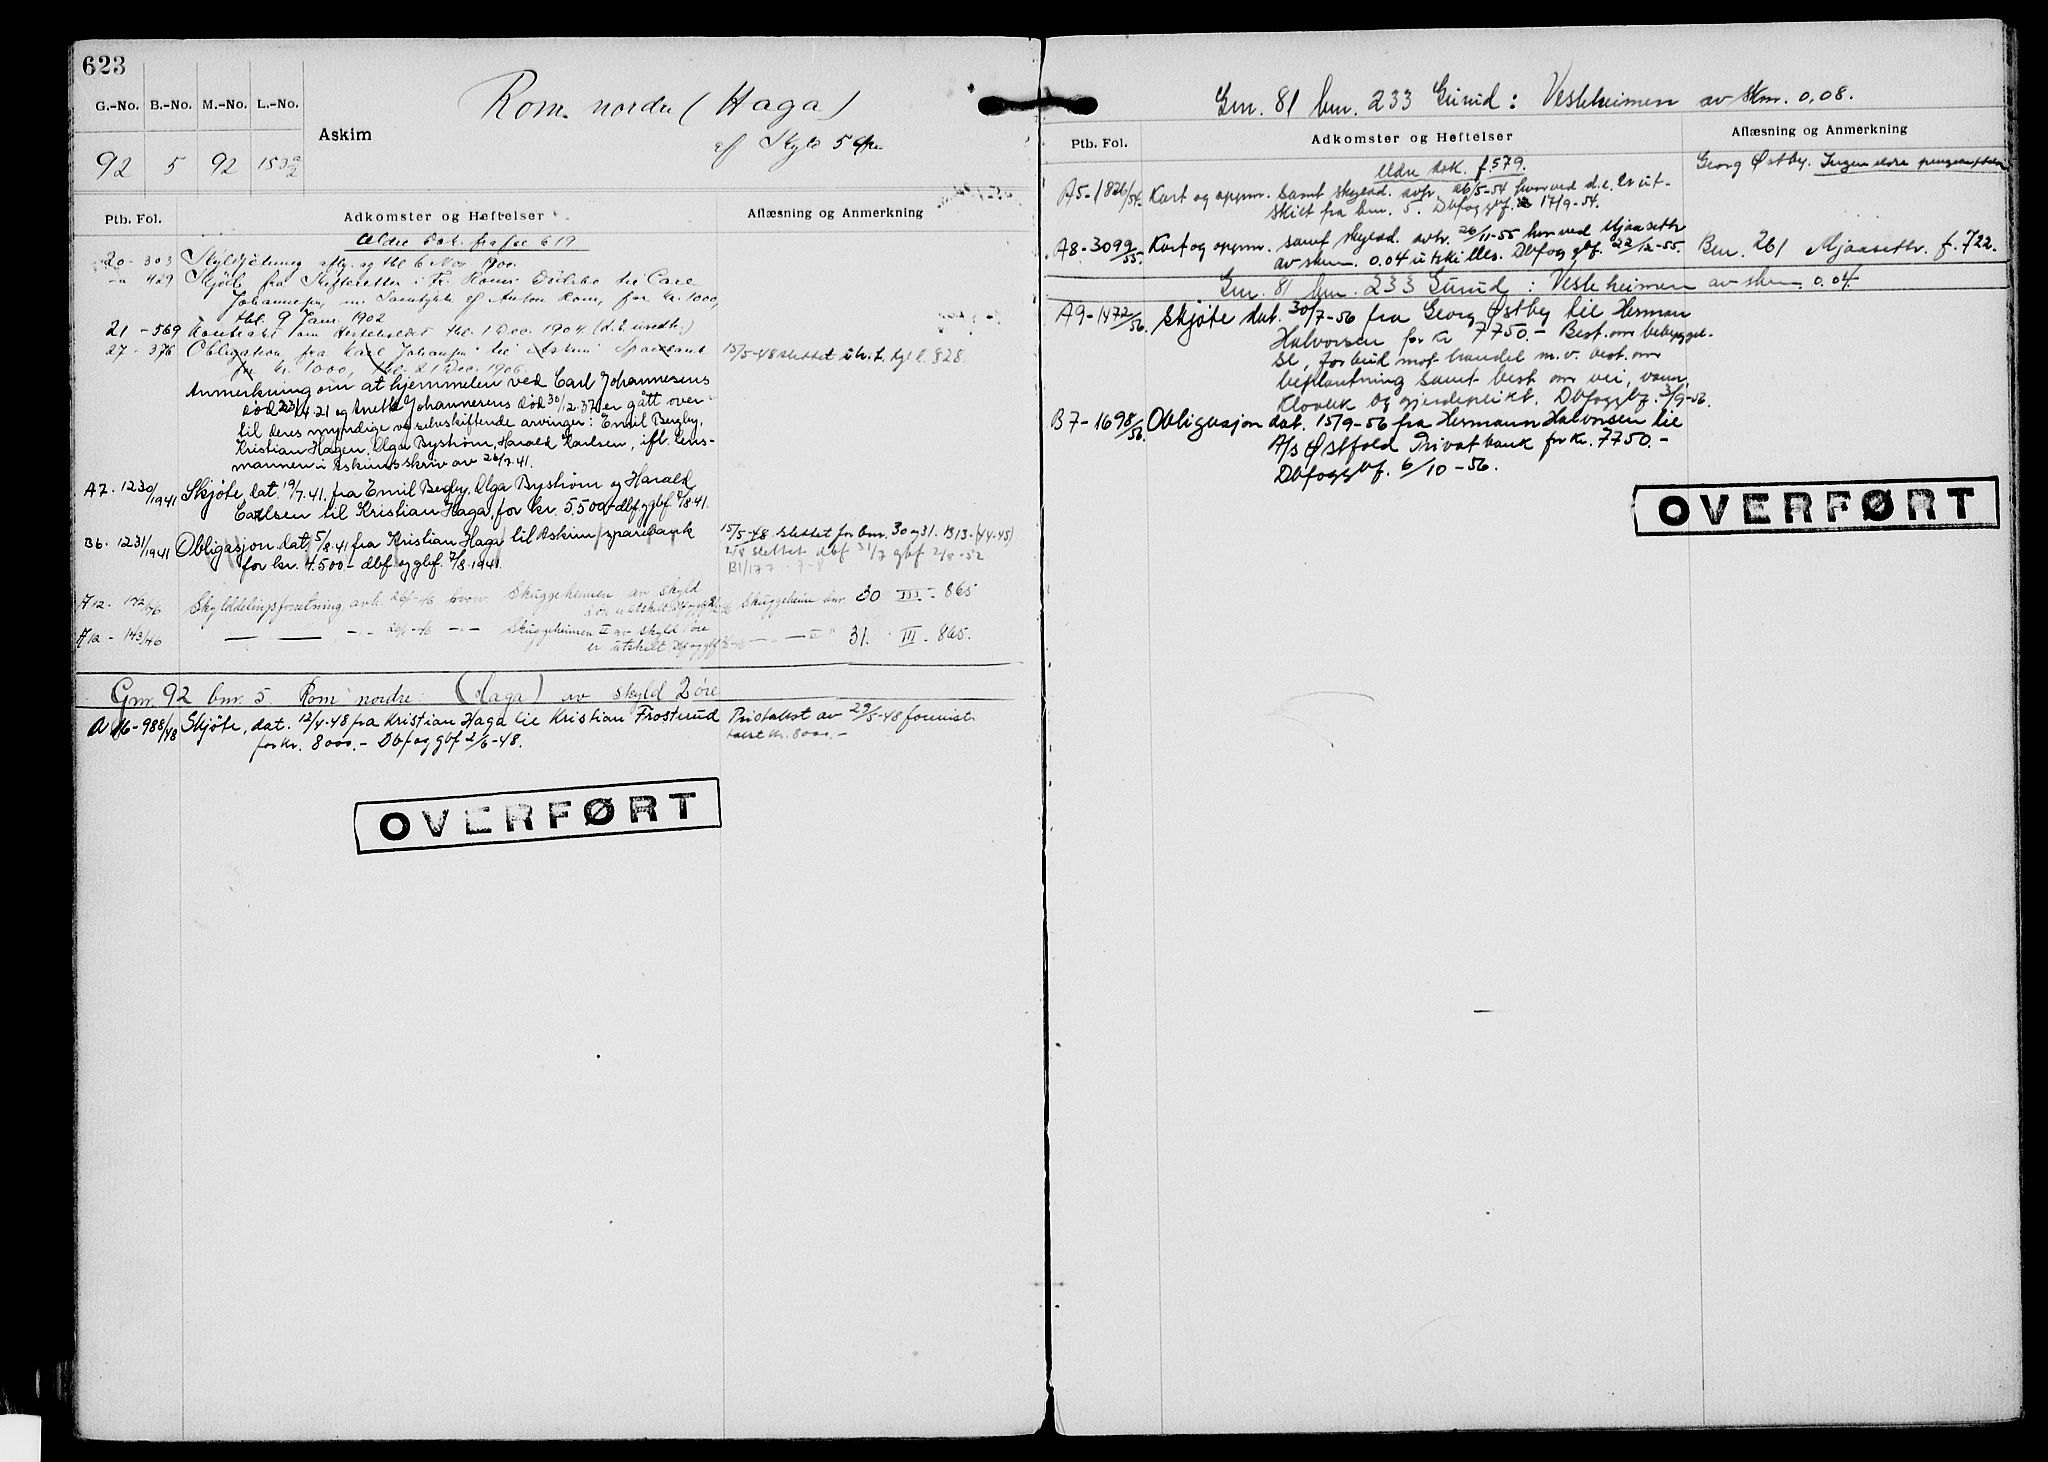 623
G.-No. B.-No. M.-No. L.-No.
92 5 92 153 a/2
Askim
Rom nordre (Haga)
af Skyld 5 øre
Ptb. Fol. Adkomster og Heftelser Aflæsning og Anmerkning
Ældre Dok. fra fol 619
20 - 303 Skylddelning afhj. og tbl 6 Nov 1900.
" 429 Skjøte fra Skifteretten i Fr. Romis Dødsbo til Carl
Johannesen, m. Samtykke af Anton Rom, for kr. 1000,
tbl. 9 Janr. 1902
21 - 569 Kontrakt om tbl. 1 Dec. 1904.
27 - 376 Obligation fra Karl Johansen til Askim Sparebank 15/5-48 slettet 828.
for kr. 1000, tbl. 21 Dec. 1906.
Anmerkning om at hjemmelen ved Carl Johannesens
død 23/4 21 og Anette Johannesens død 30/12.37 er gått over
til deres myndige og selvskiftende arvinger: Emil Bergby,
Kristian Hagen, Olga Bystrøm, Harald Karlsen, ifl. lens-
mannen i Askims skriv av 26/7.41.
A7. 1230/1941 Skjøte, dat. 19/7.41, fra Emil Bergby, Olga Bystrøm og Harald
Carlsen til Kristian Haga, for kr. 5.500,- dbf. og gbf. 7/8.41.
B6. 1231/1941 Obligasjon dat. 5/8.41 fra Kristian Haga til Askim sparebank 15/5-48 slettet for bnr. 30 og 31. B13-(44-45)
for kr. 4.500,- dbf. og gbf. 7/8.1941. 2/8 slettet dbf 31/7 gbf 2/8-52
B1/177 - 7-8
A12 - 142/46 Skylddelingsforretning avh. 26/1-46 hvorv. Skuggeheimen av skyld
2 øre er utskilt. Dbf og gbf Skuggeheim bnr. 30 III - 865
A12 - 143/46 — — - - 26/1-46 — — Skuggeheimen II av skyld 1 øre
er utskilt. Dbf og gbf — — II 31. III - 865.
Gnr. 92 bnr. 5 Rom nordre (Haga) av skyld 2 øre
A 16-988/48 Skjøte, dat. 12/4-48 fra Kristian Haga til Kristian Frosterud Pristakst av 29/5-48
for kr. 8000.- Dbf og gbf 2/6-48. takst kr. 8000.-
OVERFØRT
Gnr. 81 bnr. 233 Grund: Vesleheimen av skm. 0,08.
Ptb. Fol. Adkomster og Heftelser Aflæsning og Anmerkning
Eldre dok. f. 579. Georg Østby. Ingen eldre pengeheftelser
A5-1826/54. Kart og oppm. samt skyldd. avh. 26/5-54 hvorved d.e. er ut-
skilt fra bnr. 5. Dbf og gbf. 17/9-54.
A8-3099/55. Kart og oppm. samt skyldd. avh. 26/11-55 hvorved Mjaasether
av skm. 0.04 utskilles. Dbf og gbf. 22/12-55. Bnr. 261 Mjaasethr. f. 722.
Gnr. 81 bnr. 233 Grund: Vesleheimen av skm. 0.04.
A9-1472/56. Skjøte dat. 30/7-56 fra Georg Østby til Herman
Halvorsen for kr 7750.- Best. om bebyggel-
se, forbud mot handel m.v. best. om
beplantning samt best om vei, vann,
kloakk og gjerdeplikt. Dbf og gbf. 3/9-56.
B7-1698/56. Obligasjon dat. 15/9-56 fra Hermann Halvorsen til
A/s Østfold Privatbank for kr. 7750.-
Dbf og gbf. 6/10-56.
OVERFØRT